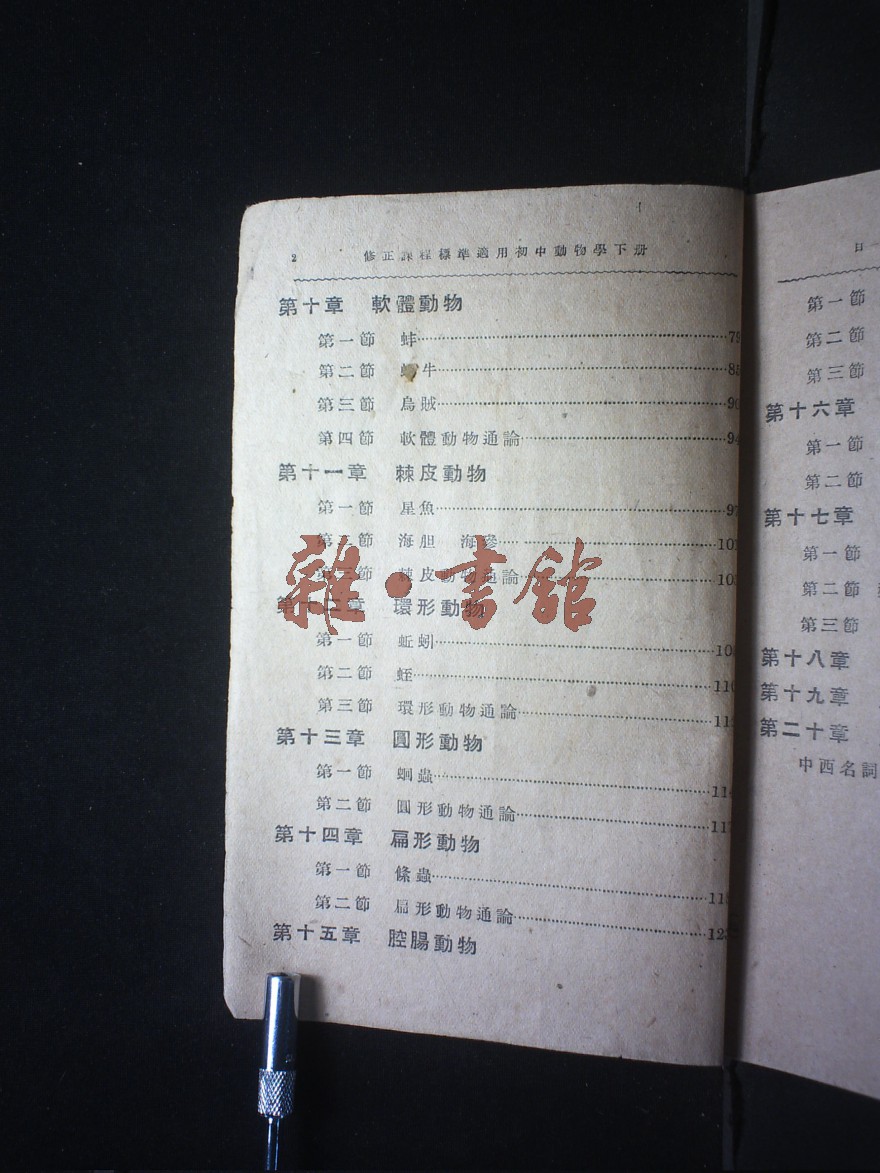 2 修正課程標準適用初中動物學下册
第十章 軟體動物
第一節 蚌……79
第二節 牛……85
第三節 烏賊……90
第四節 軟體動物通論……94
第十一章 棘皮動物
第一節 星魚……97
第二節 海胆 海參……101
第三節 棘皮動物通論……
第十二章 環形動物
第一節 蚯蚓……
第二節 蛭……110
第三節 環形動物通論……
第十三章 圓形動物
第一節 蛔蟲……114
第二節 圓形動物通論……117
第十四章 扁形動物
第一節 絛蟲……
第二節 扁形動物通論……
第十五章 腔腸動物
雜·書館
第一節
第二節
第三節
第十六章
第一節
第二節
第十七章
第一節
第二節
第三節
第十八章
第十九章
第二十章
中西名詞